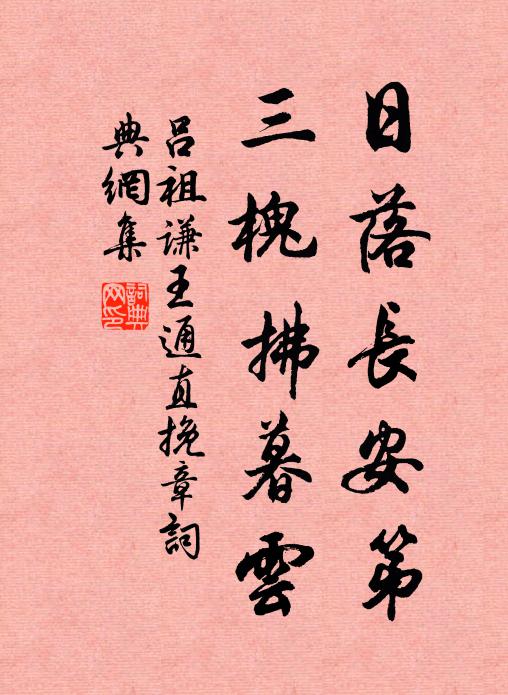 日落長安第
三槐拂暮雲
呂祖謙王通直挽章詞
典網集
詞典网印